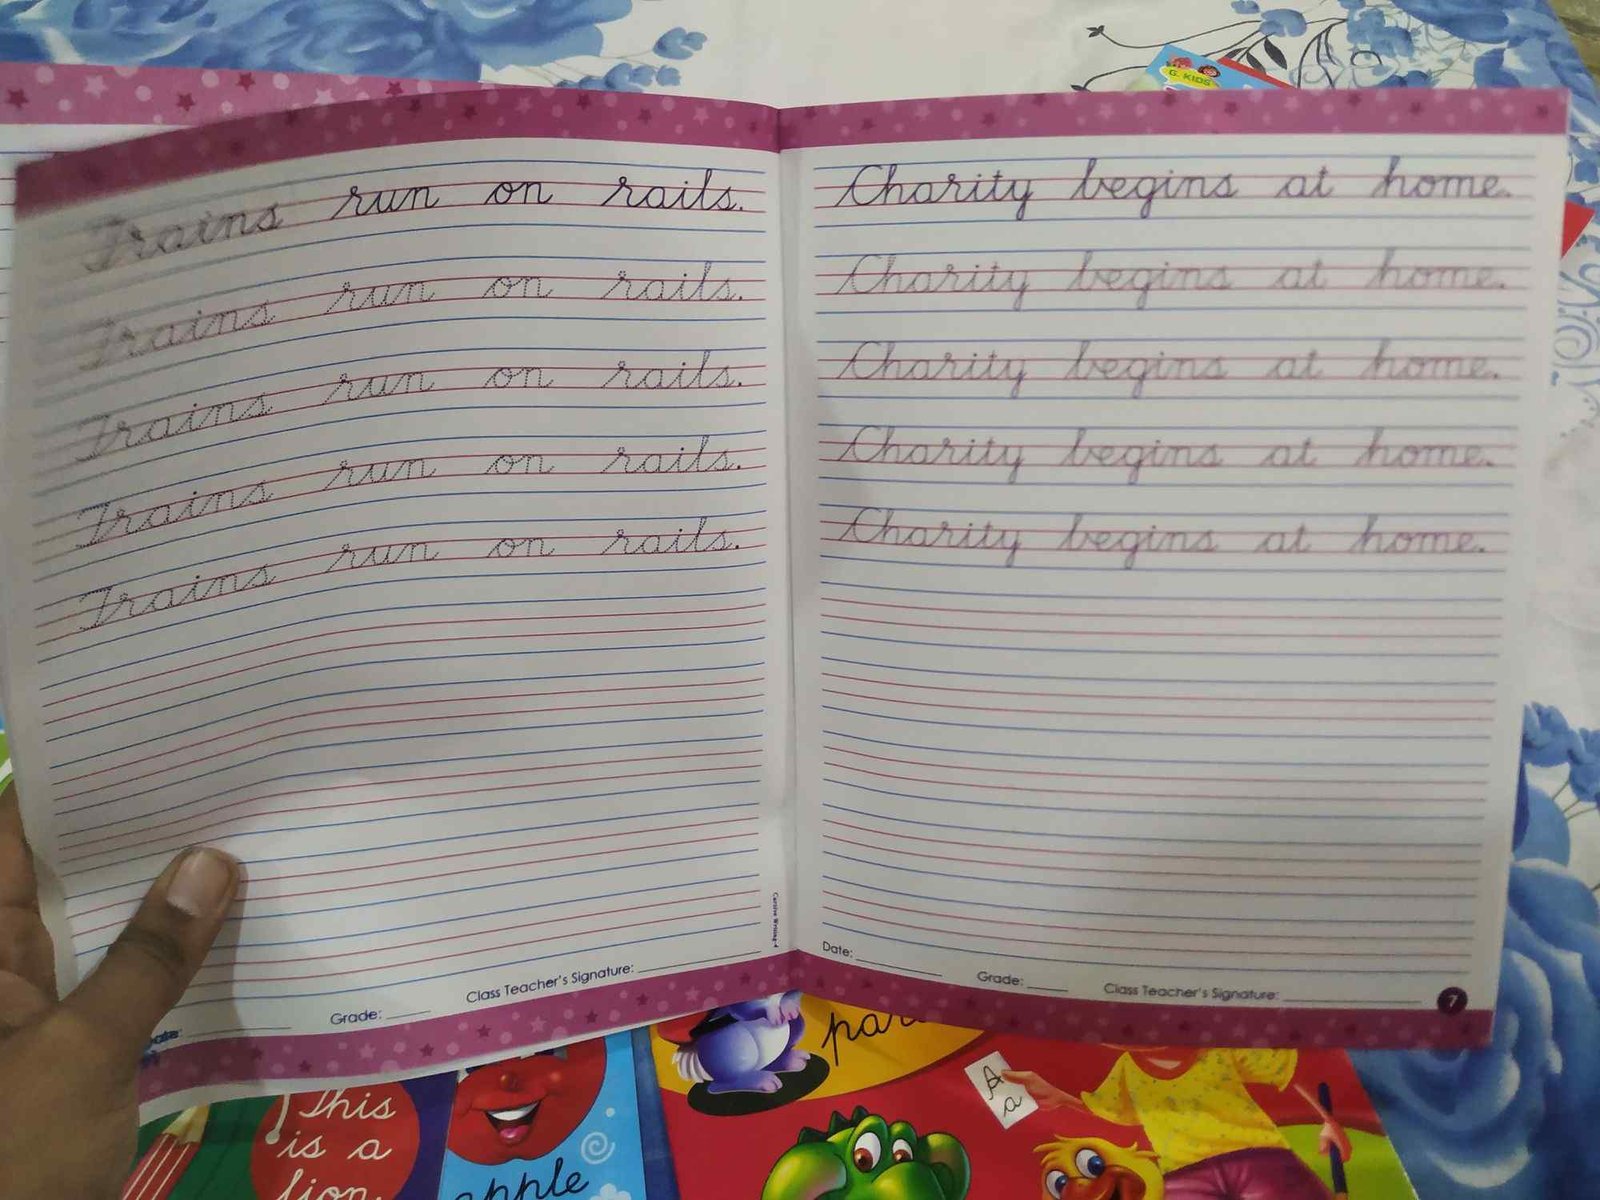 G. KIDS
Trains run on rails.
Trains run on rails.
Trains run on rails.
Trains run on rails.
Trains run on rails.
Cursive Writing-4
Class Teacher's Signature:
Grade:
Date:
Charity begins at home.
Charity begins at home.
Charity begins at home.
Charity begins at home.
Charity begins at home.
Date:
Grade:
Class Teacher's Signature:
7
This
is a
lion.
apple
A
a